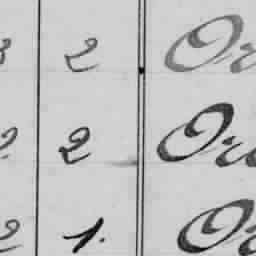 3 2 Or
2 2 Or
2 1. Or